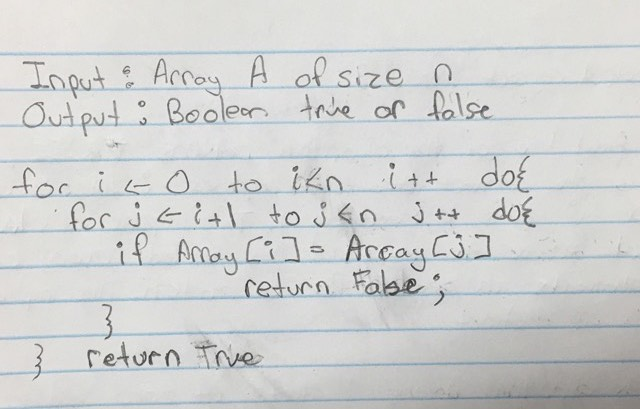 Input : Array A of size n
Output : Boolean true or false
for i ← 0 to i<n i++ do{
for j ← i+1 to j<n j++ do{
if Array[i] = Array[j]
return False;
}
} return True